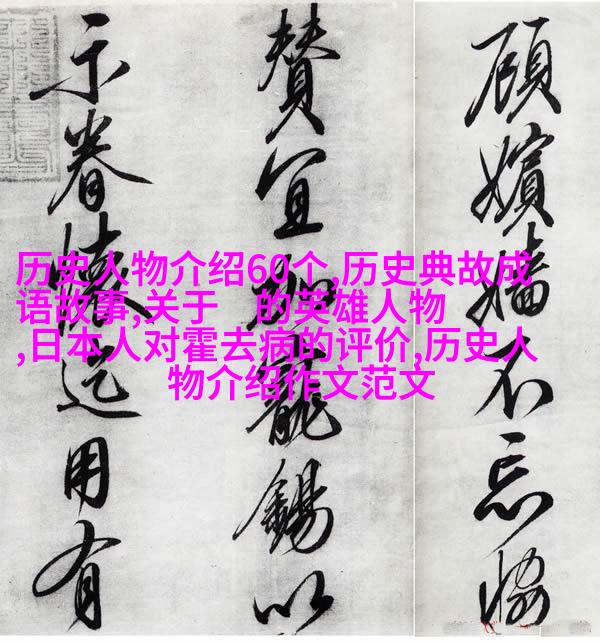 顧嬪嬙不忘協
贊宜寵錫以
示眷懷迄用有
历史人物介绍60个,历史典故成
语故事,关于 的英雄人物
,日本人对霍去病的评价,历史人
物介绍作文范文